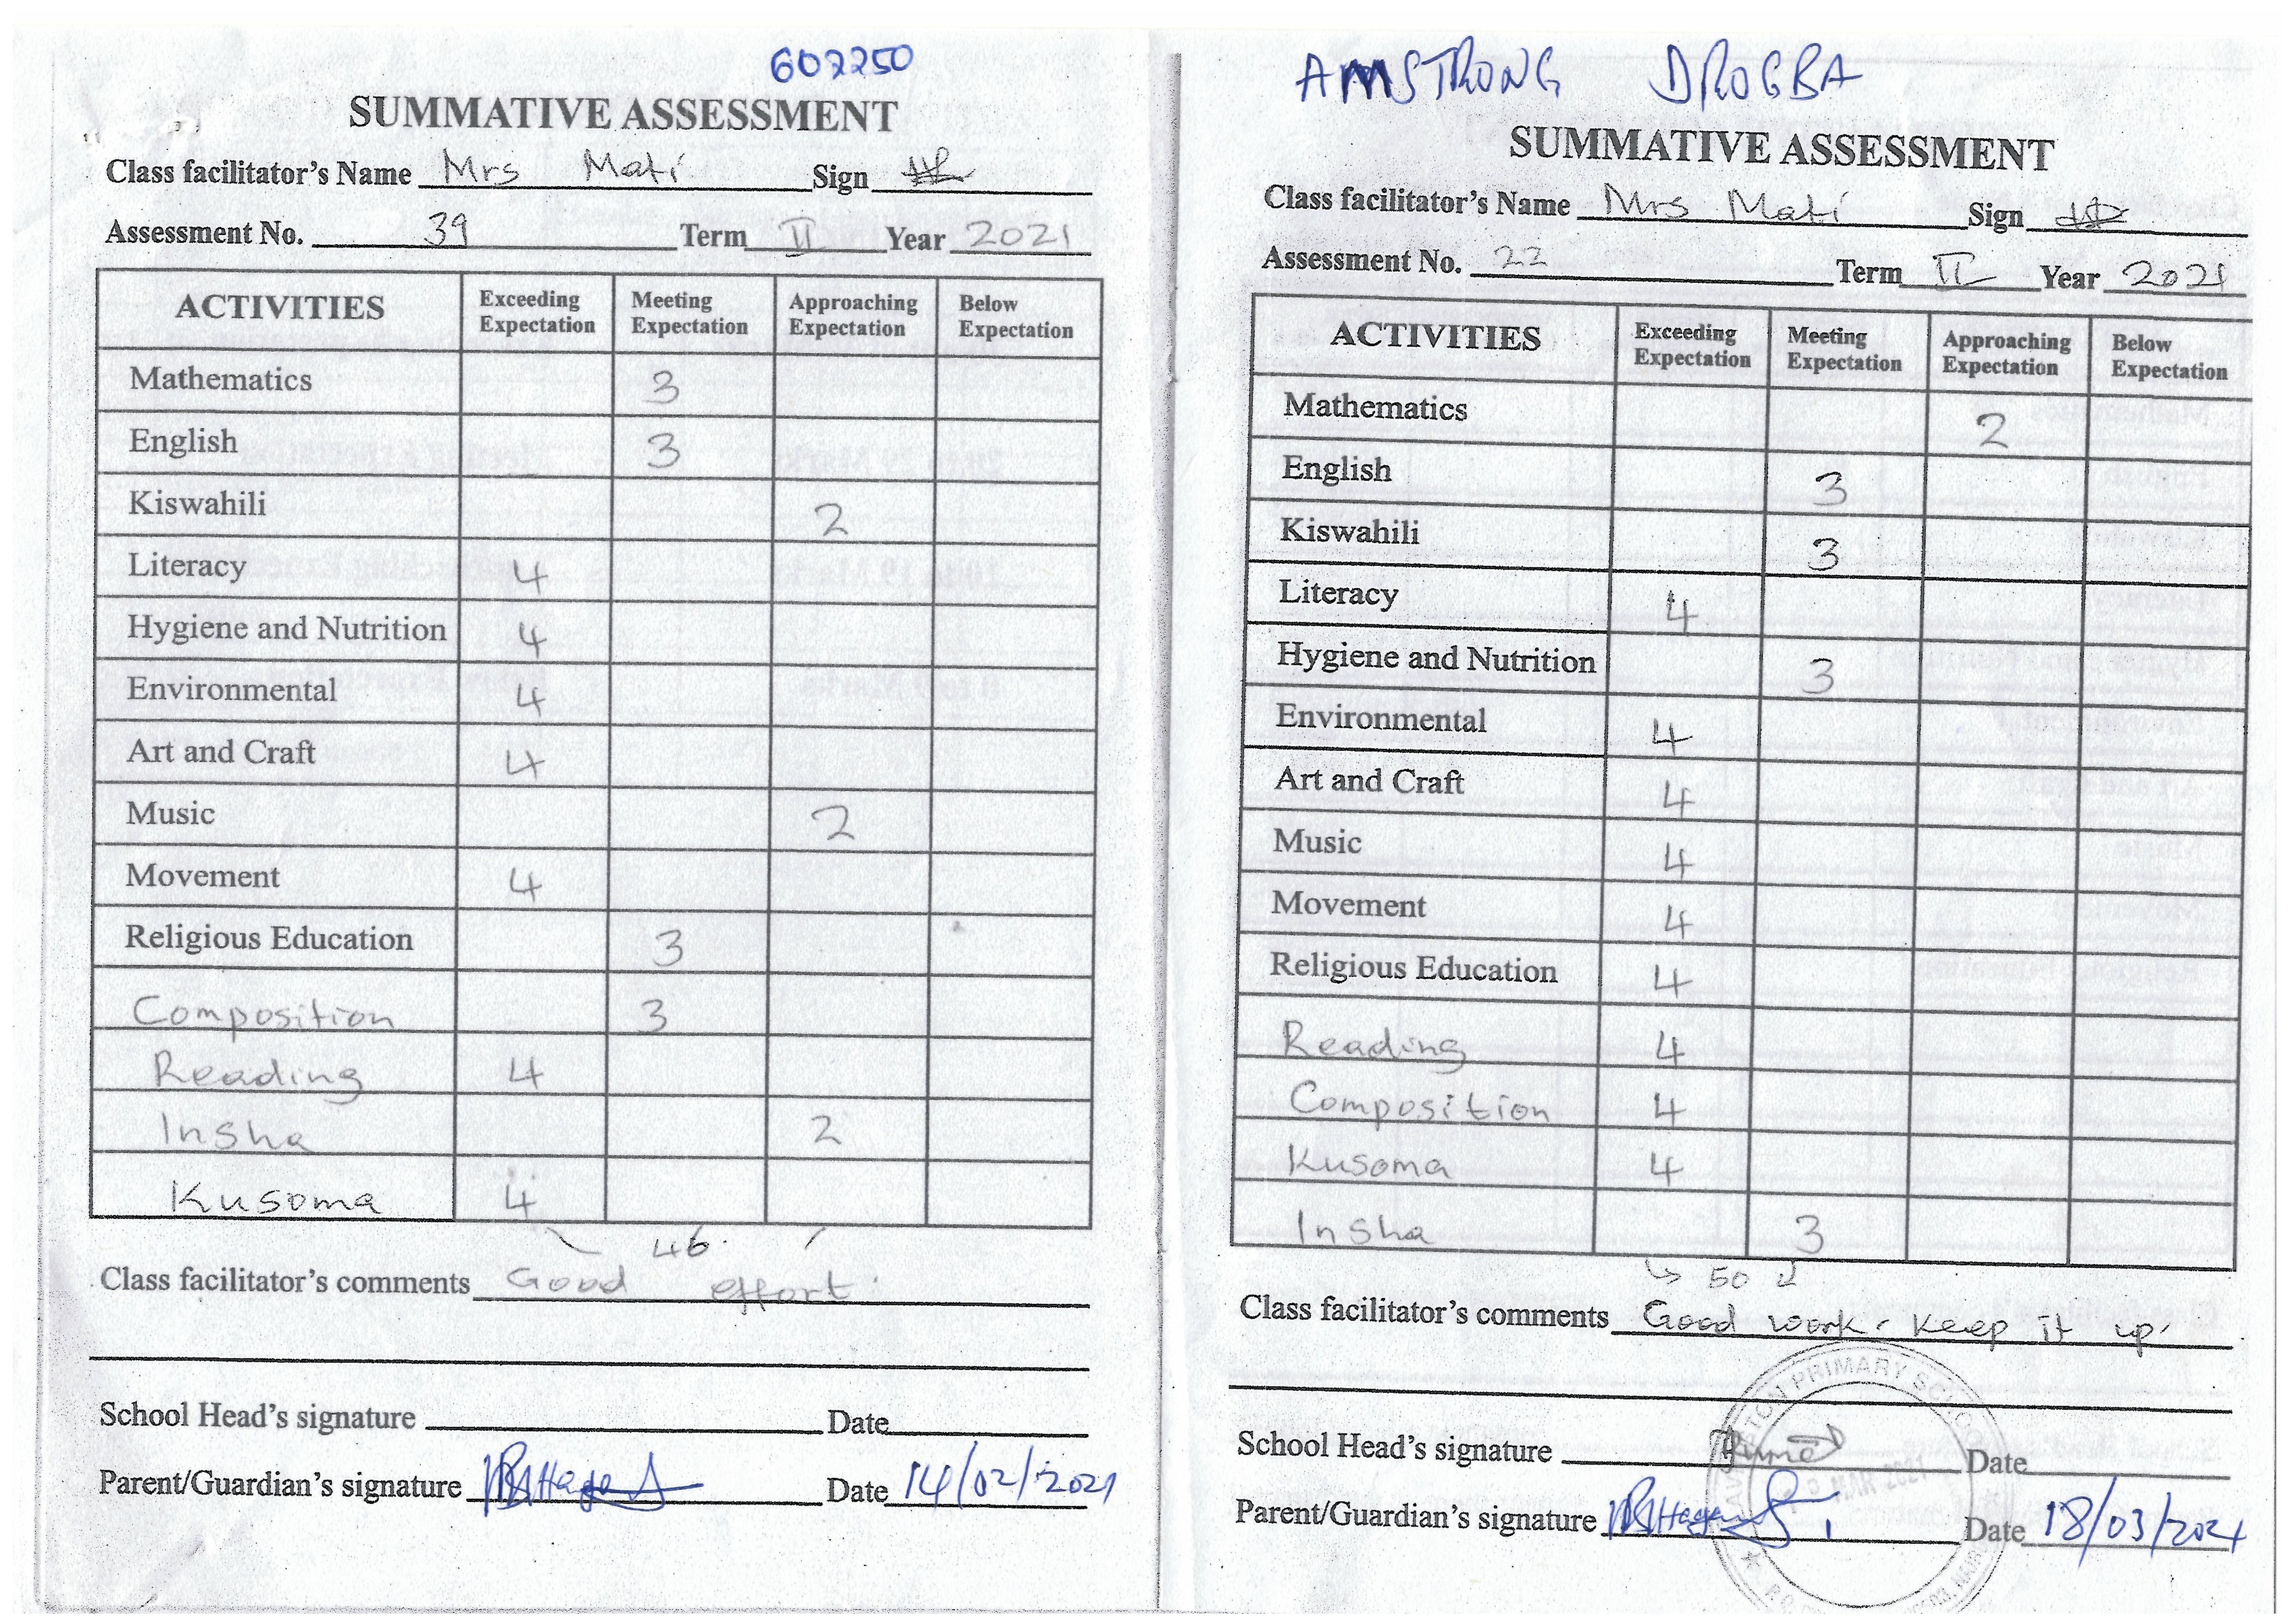 602250
SUMMATIVE ASSESSMENT
Class facilitator's Name Mrs Mati Sign
Assessment No. 39 Term II Year 2021
ACTIVITIES Exceeding Expectation Meeting Expectation Approaching Expectation Below Expectation
Mathematics 3
English 3
Kiswahili 2
Literacy 4
Hygiene and Nutrition 4
Environmental 4
Art and Craft 4
Music 2
Movement 4
Religious Education 3
Composition 3
Reading 4
Insha 2
Kusoma 4
46
Class facilitator's comments Good effort.
School Head's signature Date
Parent/Guardian's signature Date 14/02/2021
AMSTRONG DROGBA
SUMMATIVE ASSESSMENT
Class facilitator's Name Mrs Mati Sign
Assessment No. 22 Term II Year 2021
ACTIVITIES Exceeding Expectation Meeting Expectation Approaching Expectation Below Expectation
Mathematics 2
English 3
Kiswahili 3
Literacy 4
Hygiene and Nutrition 3
Environmental 4
Art and Craft 4
Music 4
Movement 4
Religious Education 4
Reading 4
Composition 4
Kusoma 4
Insha 3
50
Class facilitator's comments Good work. Keep it up.
PRIMARY SCHOOL
School Head's signature Date
MAR 2021
Parent/Guardian's signature Date 18/03/2021